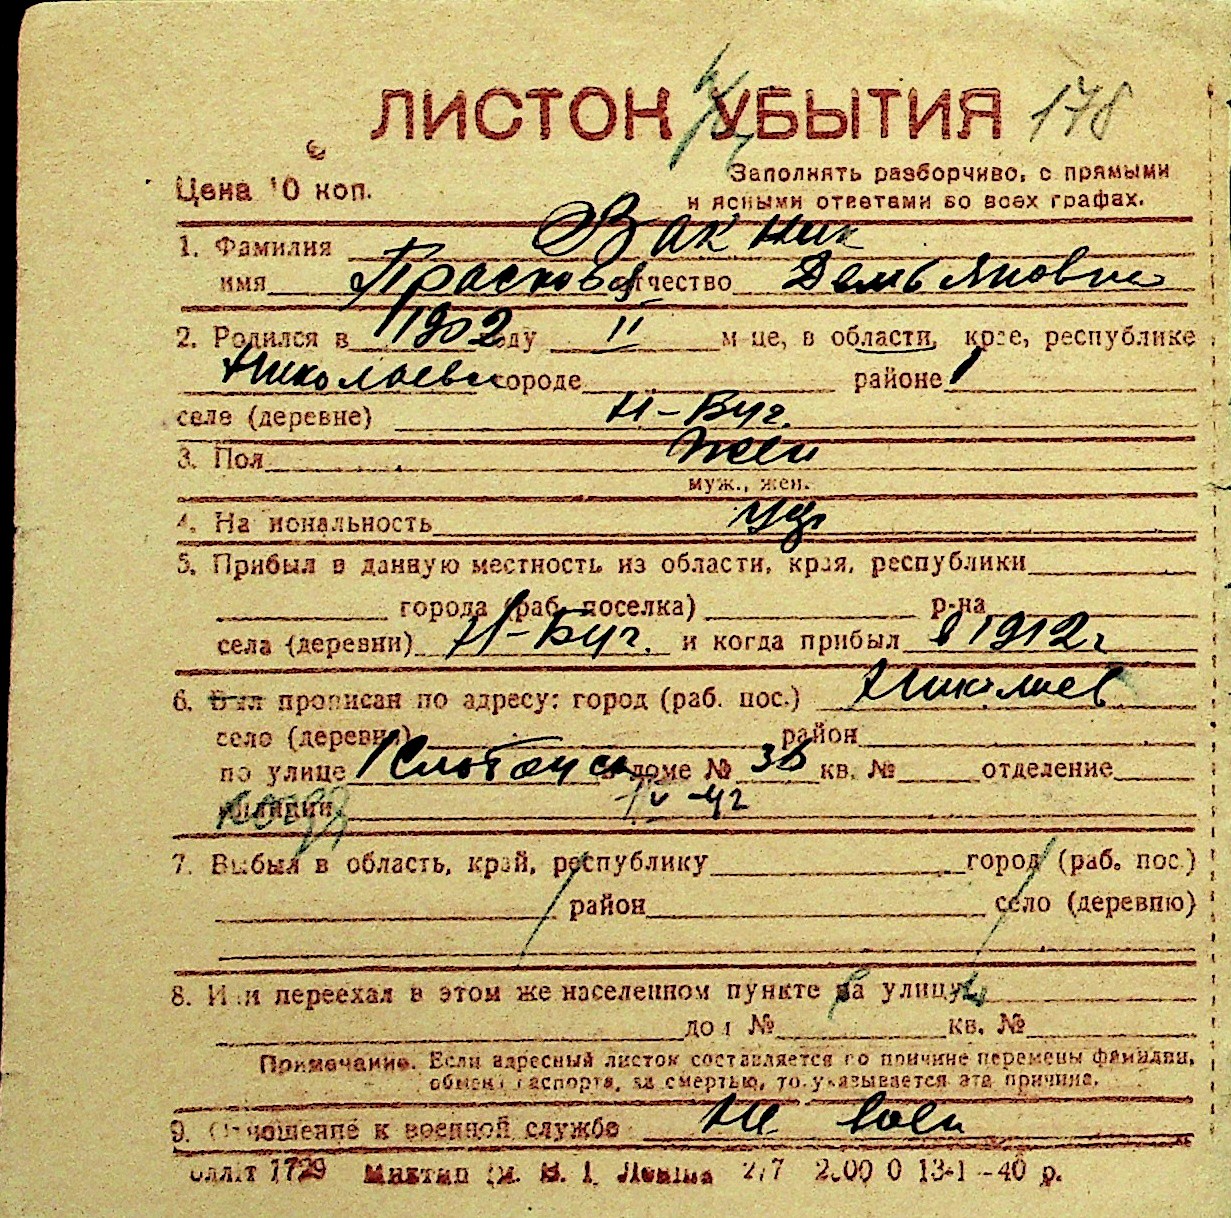 ЛИСТОК УБЫТИЯ 178
Цена 10 коп.
Заполнять разборчиво, с прямыми
и ясными ответами во всех графах.
1. Фамилия Закник
имя Прасковья отчество Демьяновна
2. Родился в 1902 году II м-це, в области, крае, республике
Николаевск городе районе
селе (деревне) Н-Буг.
3. Пол жен
муж., жен.
4. Национальность
5. Прибыл в данную местность из области, края, республики
города (раб. поселка) р-на
села (деревни) Н-Буг. и когда прибыл в 1912 г
6. Был прописан по адресу: город (раб. пос.) Николаев
село (деревня) район
по улице в доме № 36 кв. № отделение
милиции
7. Выбыл в область, край, республику город (раб. пос.)
район село (деревню)
8. Или переехал в этом же населенном пункте на улицу
дом № кв. №
Примечание. Если адресный листок составляется по причине перемены фамилии,
обмена паспорта, за смертью, то указывается эта причина.
9. Отношение к военной службе не воен
1729 им. В. И. Ленина 13-1-40 р.